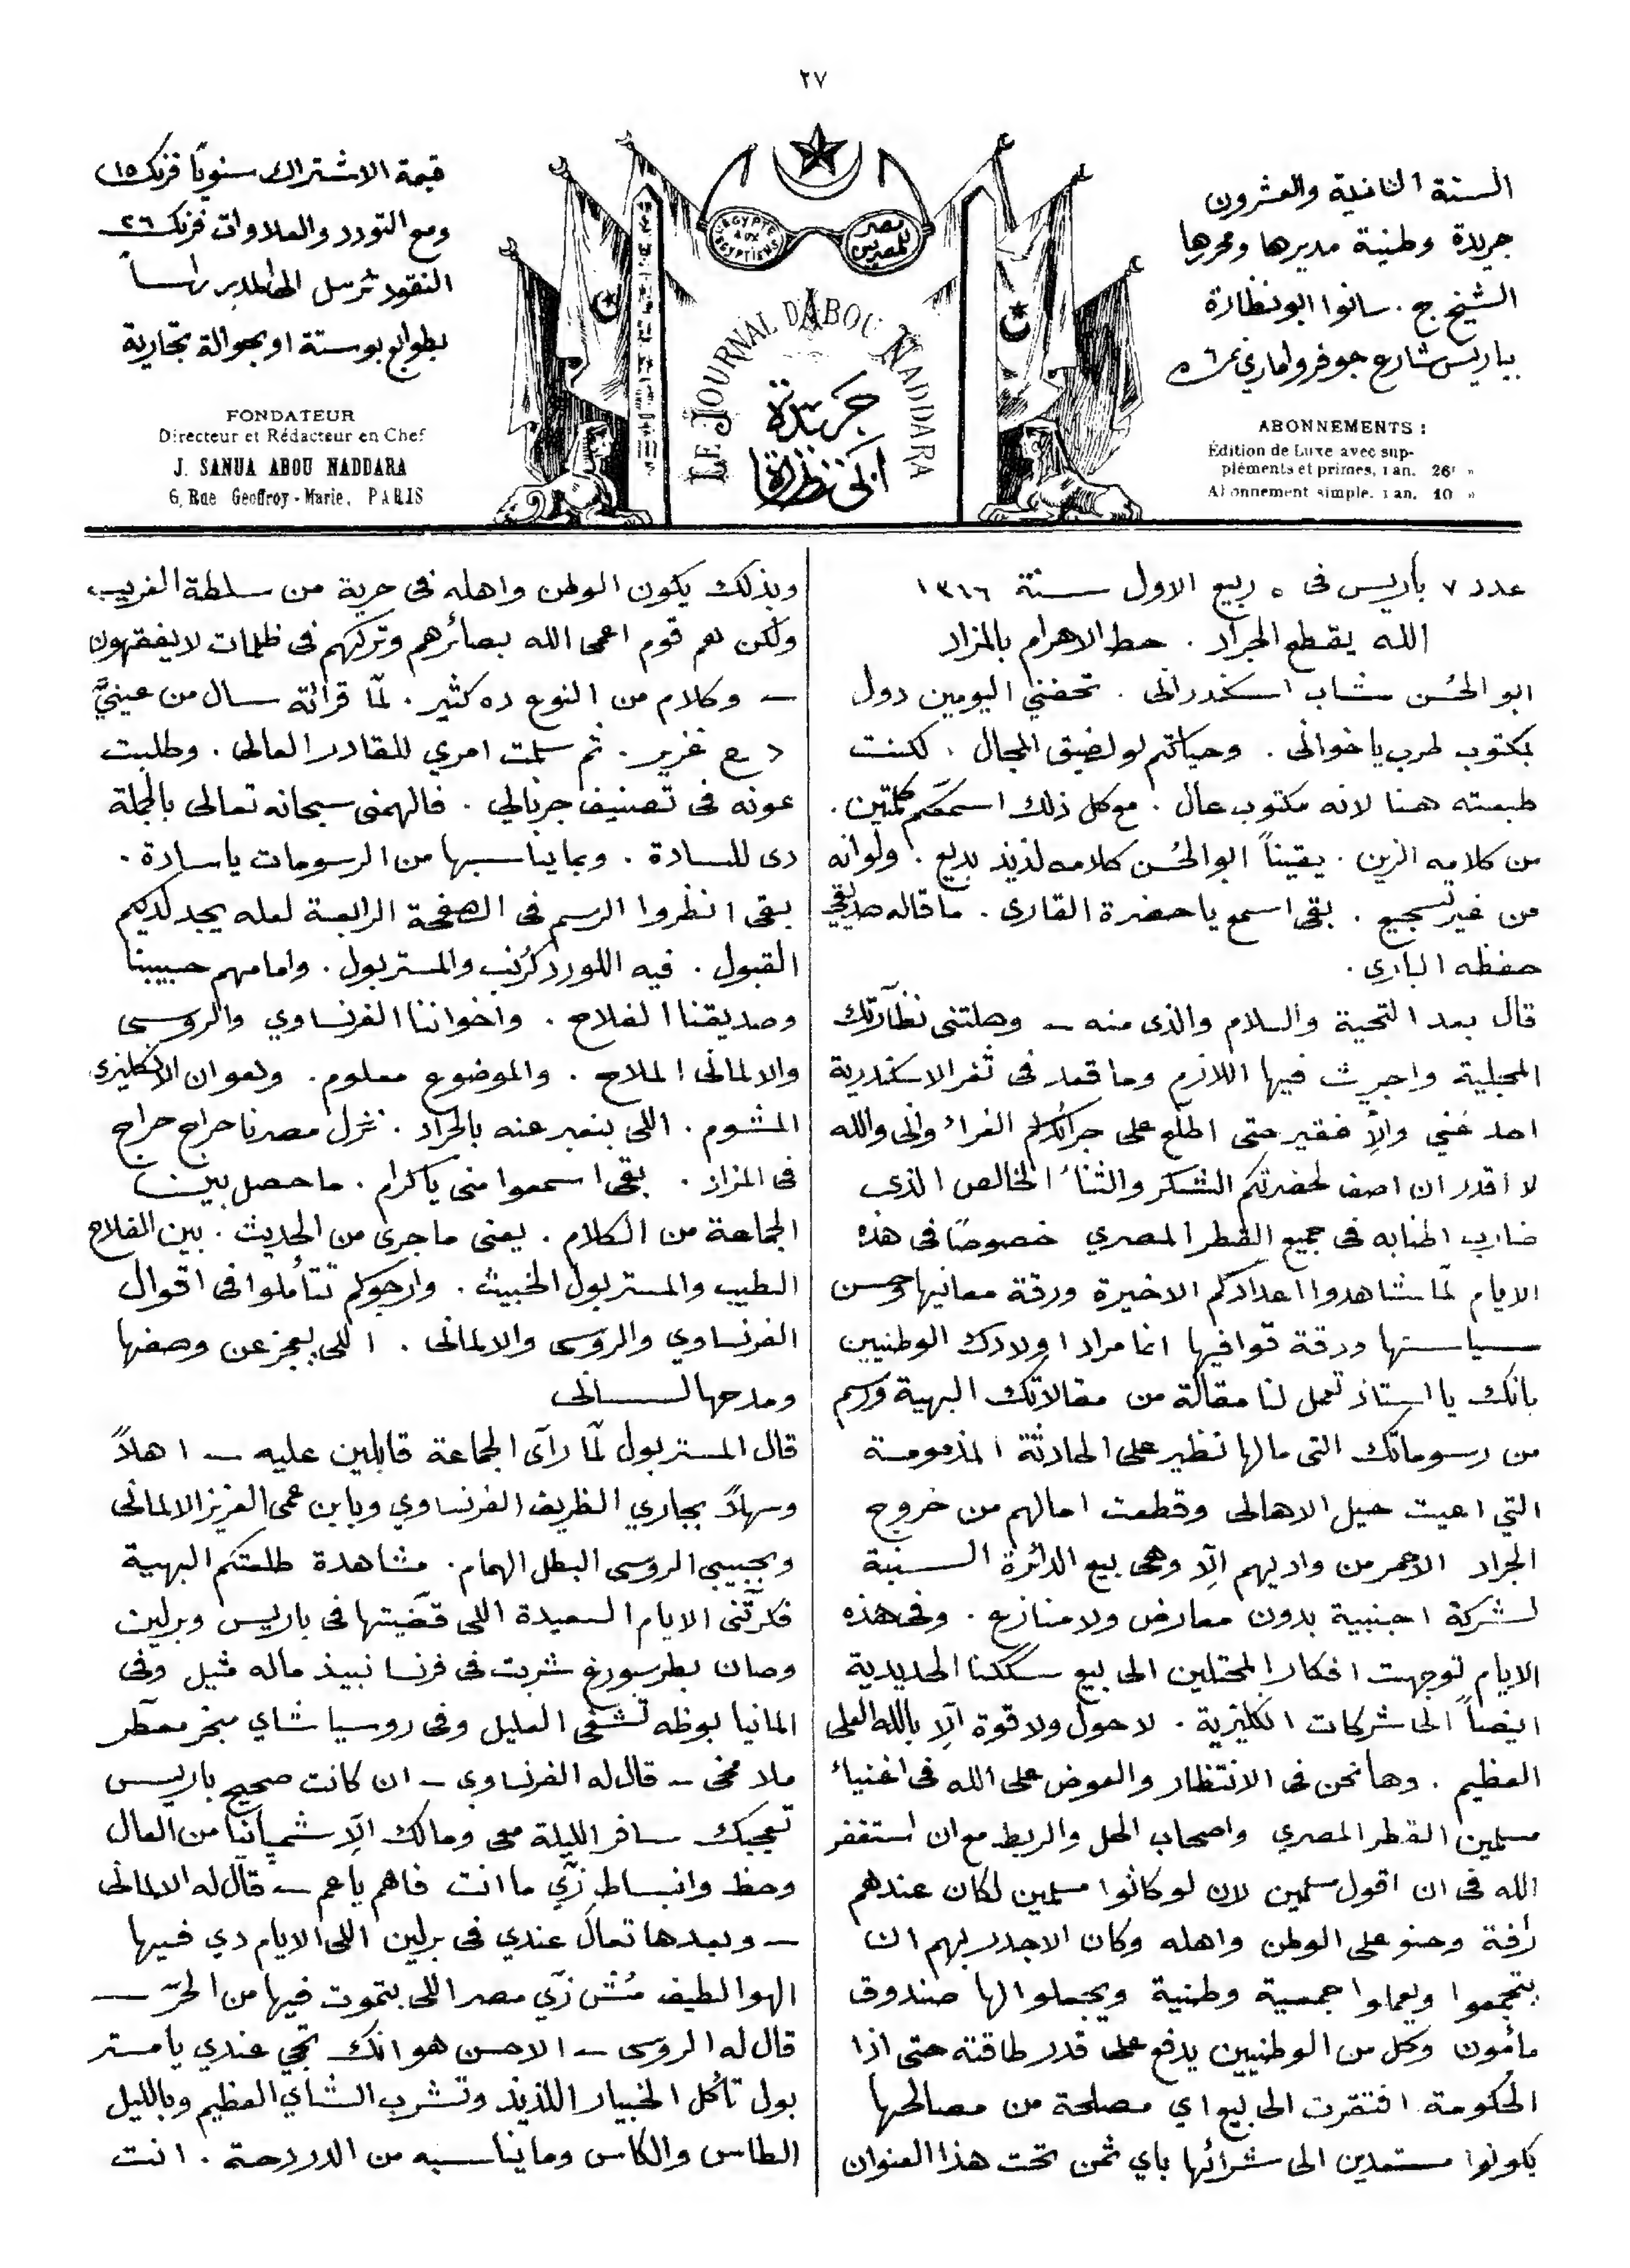 ٢٧
السنة الثانية والعشرون
جريدة وطنية مديرها ومحررها
الشيخ ج. سانوا ابو نظارة
بباريس شارع جوفروا ماري نمرة ٦
ABONNEMENTS :
Édition de Luxe avec sup-
pléments et primes, 1 an. 26f »
Abonnement simple. 1 an. 10 »
L'EGYPTE AUX EGYPTIENS
مصر للمصريين
LE JOURNAL D'ABOU NADDARA
جريدة
ابي نظارة
قيمة الاشتراك سنويًا فرنك ١٥
ومع التودد والعلاوات فرنك ٢٦
النقود ترسل الى المدير راسـاً
بطوابع بوستة او بحوالة تجارية
FONDATEUR
Directeur et Rédacteur en Chef
J. SANUA ABOU NADDARA
6, Rue Geoffroy-Marie, PARIS
عدد ٧ باريس فى ٥ ربيع الاول سـنة ١٣١٦
الله يقطع الجراد . حط الاهرام بالمزاد
ابو الحُسن شاب اسكندرانى . تحفني اليومين دول
بمكتوب طرب يا خوانى . وحياتكم لو لضيق المجال . لكنت
طبعته هنا لانه مكتوب عال . مع كل ذلك اسمعكم كلمتين .
من كلامه الزين . يقيناً ابو الحُسن كلامه لذيذ بديع . ولو انه
من غير تسجيع . بقى اسمع يا حضرة القارى . ما قاله صديقي
حفظه البارى .
قال بعد التحية والسلام والذى منه ــ وصلتنى نظّارتك
المجلية واجريت فيها اللازم وما قعد فى ثغر الاسكندرية
احد غني والاّ فقير حتى اطلع على جرانلكم الغراء وانى والله
لا اقدر ان اصف لحضرتكم الشكر والثناء الخالص الذى
ضارب اطنابه فى جميع القطر المصري خصوصًا فى هذه
الايام لمّا شاهدوا اعدادكم الاخيرة ورقة معانيها وحسن
سياستها ودقة قوافيها انما مراد اولادك الوطنيين
بانك يا استاذ تعمل لنا مقالة من مقالاتك البهية ورسم
من رسوماتك التى مالها نظير على الحادثة المذمومة
التي اعيت حيل الاهالى وقطعت امالهم من خروج
الجراد الاحمر من واديهم الّا وهى بيع الدائرة السنية
لشركة اجنبية بدون معارض ولا منازع . وفى هذه
الايام توجهت افكار المحتلين الى بيع سككنا الحديدية
ايضاً الى شركات انكليزية . لا حول ولا قوة الّا بالله العلى
العظيم . وها نحن فى الانتظار والعوض على الله فى اغنياء
مسلمين القطر المصري واصحاب الحل والربط مع ان استغفر
الله فى ان اقول مسلمين لان لو كانوا مسلمين لكان عندهم
رأفة وحنو على الوطن واهله وكان الاجدر بهم ان
يتجمعوا ويعملوا جمعية وطنية ويجعلوا لها صندوق
مأمون وكل من الوطنيين يدفع على قدر طاقته حتى اذا
الحكومة افتقرت الى بيع اي مصلحة من مصالحها
يكونوا مستعدين الى شرائها باي ثمن تحت هذا العنوان
وبذلك يكون الوطن واهله فى حرية من سلطة الغريب
ولكن هم قوم اعمى الله بصائرهم وتركهم فى ظلمات لا يفقهون
ــ وكلام من النوع ده كثير . لمّا قرأته سال من عينيَّ
دمع غزير . ثم سلمت امري للقادر العالى . وطلبت
عونه فى تصنيف جرنالي . فالهمنى سبحانه تعالى بالجملة
دى للسادة . وبما يناسبها من الرسومات يا سادة .
بقى انظروا الرسم فى الصفحة الرابعة لعله يجد لديكم
القبول . فيه اللورد كرُنب والمستر بول . وامامهم حبيبنا
وصديقنا الفلاح . واخواننا الفرنساوي والروسى
والالمانى الملاح . والموضوع معلوم . وهو ان الانكليزى
المشوم . اللى بنعبر عنه بالجراد . نزل مصرنا حراج حراج
فى المزاد . بقى اسمعوا منى يا كرام . ما حصل بين
الجماعة من الكلام . يعنى ما جرى من الحديث . بين الفلاح
الطيب والمستر بول الخبيث . وارجوكم تتأملوا فى اقوال
الفرنساوي والروسى والالمانى . اللى يعجز عن وصفها
ومدحها لسـانى
قال المستر بول لمّا رآى الجماعة قابلين عليه ــ اهلاً
وسهلاً بجاري الظريف الفرنساوي وبابن عمى العزيز الالمانى
وبحبيبى الروسى البطل الهمام . مشاهدة طلعتكم البهية
فكرتنى الايام السعيدة اللى قضّيتها فى باريس وبرلين
وصان بطرسبورغ شربت فى فرنسا نبيذ ماله مثيل وفى
المانيا بوظه تشفى العليل وفى روسيا شاي مبخر معطّر
ملا مخى ــ قال له الفرنساوى ــ ان كانت صحيح باريس
تعجبك سافر الليلة معى ومالك الّا شمبانيا من العال
وحظ وانبساط زيّ ما انت فاهم يا عم ــ قال له الالمانى
ــ وبعدها تعال عندي فى برلين اللى الايام دي فيها
الهوا لطيف مُش زيّ مصر اللى بتموت فيها من الحرّ ــ
قال له الروسى ــ الاحسن هو انك تجي عندي يا مستر
بول تأكل الخبيار اللذيذ وتشرب الشاي العظيم وبالليل
الطاس والكاس وما يناسبه من الدردحة . انت